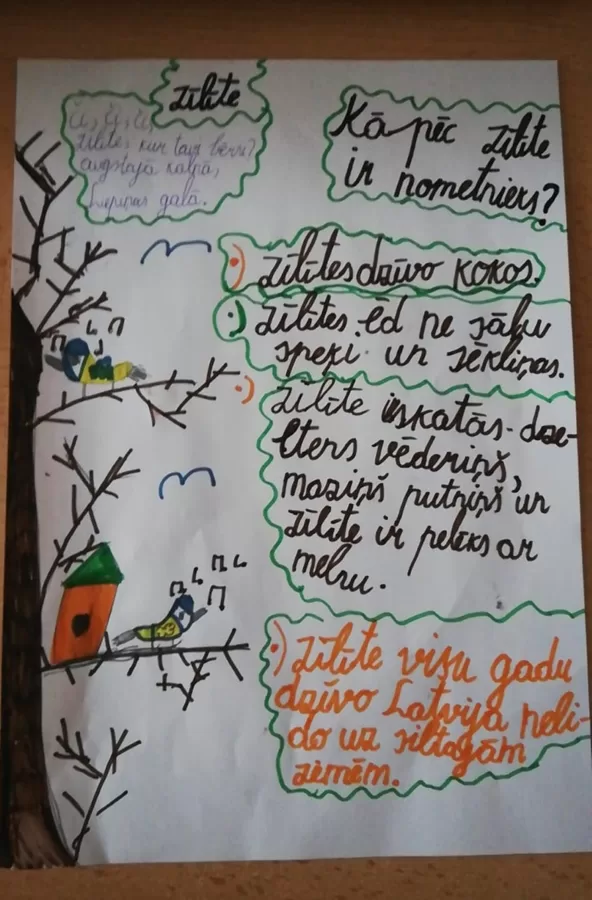 zīlīte
Či, či, či,
zīlītes kur tavi bērni?
augstajā kalnā,
Liepiņas galā.
Kā pēc zīlīte
ir nometnieks?
zīlītes dzīvo kokos.
zīlītes ēd ne sāļu
speķi un sēkliņas.
zīlīte iskatās dze-
ltens vēderiņš,
maziņš putniņš un
zīlīte ir pelēks ar
melnu.
zīlīte visu gadu
dzīvo Latvijā neli-
do uz siltajām
zemēm.